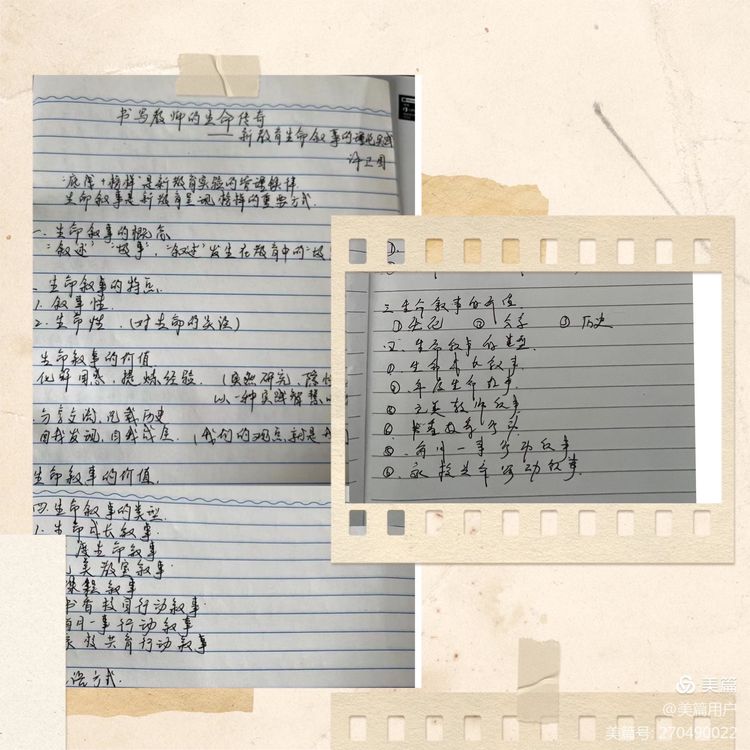 书写教师的生命传奇
——新教育生命叙事的理论与实践
许卫国
"底座+榜样"是新教育实验的管理
生命叙事是新教育呈现榜样的重要方式.
一.生命叙事的概念
"叙述""故事","叙述"发生在教育中的"故
生命叙事的特点.
1.叙事性.
2.生命性.(对生命的关注)
生命叙事的价值.
化解困惑,提炼经验.
以一种实践智慧
分享交流,记载历史
自我发现,自我成長.(我们的观点就是
生命叙事的价值.
四.生命叙事的类型.
1.生命成长叙事.
度生命叙事
美教室叙事
课程叙事
书香校园行动叙事.
每月一事行动叙事
家校共育行动叙事
方式.
D.
三.生命叙事的价值.
② 分享 ③ 历史
四.生命叙事的类型.
①.生命成长叙事.
②.年度生命叙事.
③.完美教师叙事
⑤.每月一事行动叙事
⑥.家校共育行动叙事.
美篇
@美篇用户
美篇号: 270490022